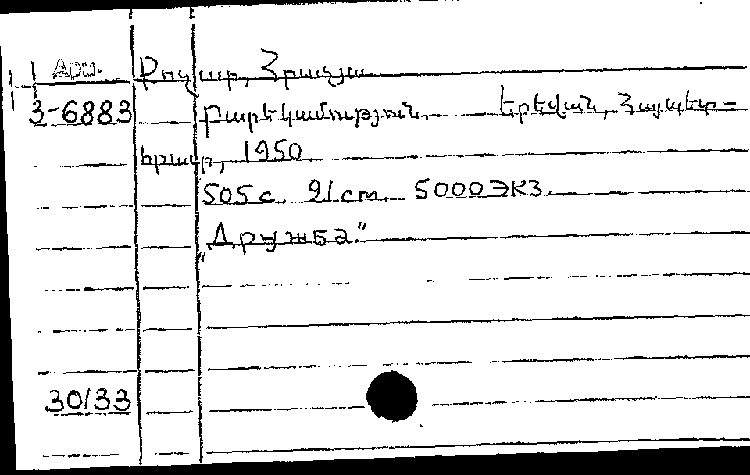 Арм. Քոչար, Հրաչյա
3-6883 Բարեկամություն. Երեվան, Հայպետ-
հրատ, 1950
505 с. 21 cm. 5000 ЭКЗ.
„Дружба"
30133